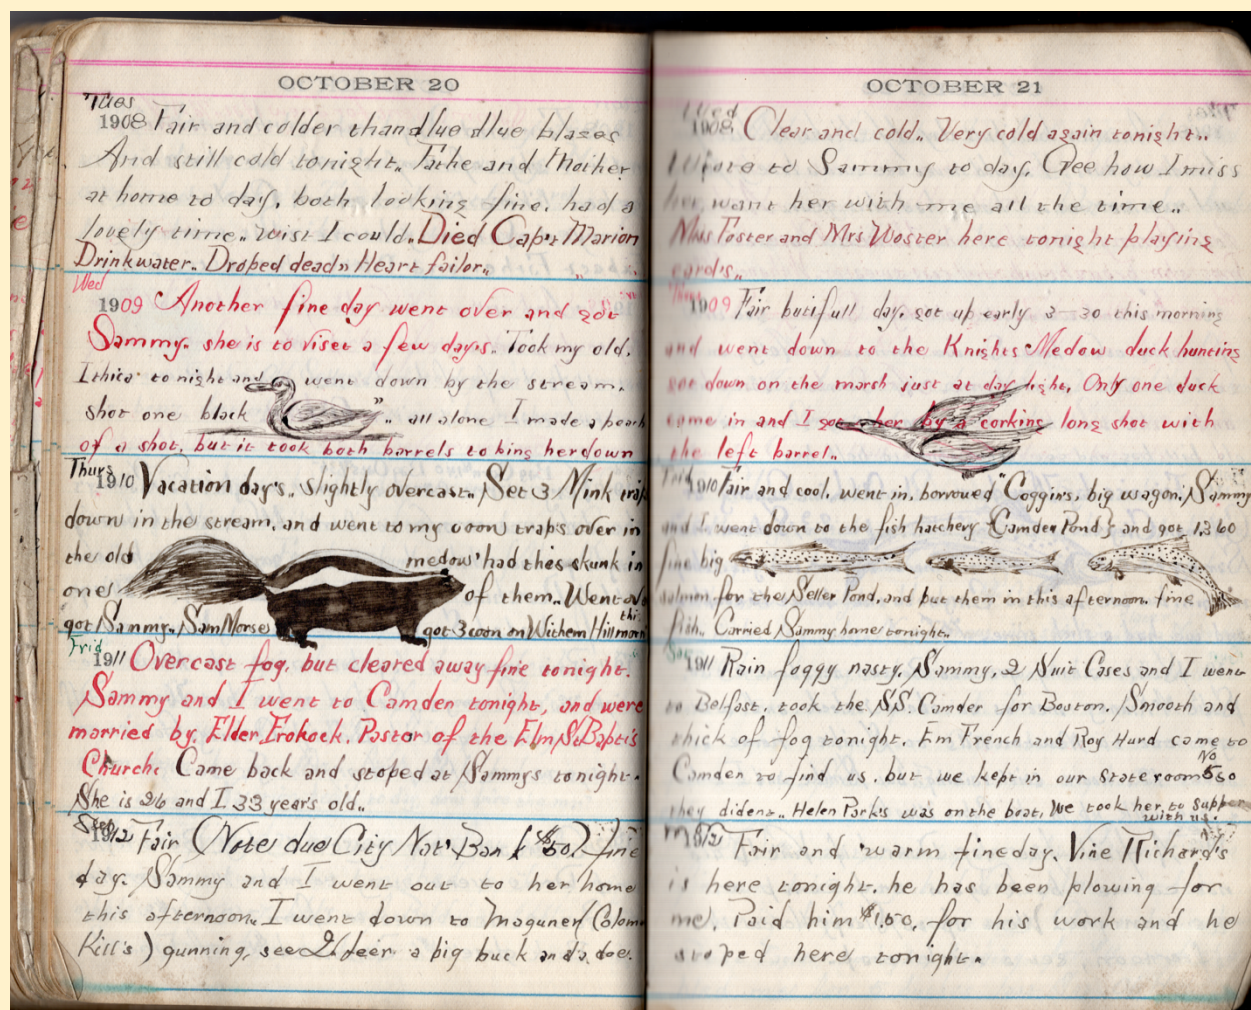 OCTOBER 20
Tues
1908 Fair and colder than dlue dlue blazes
And still cold tonight. Fathe and Mother
at home to day, both looking fine. had a
lovely time.. wist I could. Died Cap't Marion
Drinkwater.. Droped dead" Heart failor..
Wed
1909 Another fine day went over and got
Sammy. she is to viset a few day's. Took my old.
Ithica to night and went down by the stream.
shot one black ".. all alone I made a peach
of a shot, but it took both barrels to bing her down
Thurs
1910 Vacation day's.. slightly overcast.. Set 3 Mink trap
down in the stream, and went to my coon trap's over in
the old medow' had this skunk in
one of them.. Went over
got Sammy.. Sam Morse got 3 coon on Withem Hill this morn
Frid
1911 Overcast fog. but cleared away fine tonight.
Sammy and I went to Camden tonight, and were
married by. Elder Frohock. Pastor of the Elm St Baptis
Church. Came back and stoped at Sammys tonight.
She is 26 and I 33 year's old..
1912 Fair (Note due City Nat' Bank $50.) fine
day. Sammy and I went out to her home
this afternoon. I went down to
Kill's) gunning, see 2 deer a big buck and a doe.
OCTOBER 21
Wed
1908 Clear and cold.. Very cold again tonight..
Wrote to Sammy to day. Gee how I miss
her, want her with me all the time..
Mrs Foster and Mrs Woster here tonight playsing
card's..
Thurs
1909 Fair butifull day. got up early 3-30 this morning
and went down to the Knights Medow duck hunting
got down on the marsh just at day light, Only one duck
came in and I got her by a corking long shot with
the left barrel..
Frid
1910 Fair and cool. went in, borroued "Coggin's, big wagon. Sammy
and I went down to the fish hatchery {Camden Pond} and got 1,360
fine big
salmon for the Seller Pond, and put them in this afternoon. fine
fish.. Carried Sammy home tonight..
Sat
1911 Rain foggy nasty. Sammy, 2 Suit Cases and I went
to Belfast. took the S.S. Camder for Boston. Smooth and
thick of fog tonight. Em French and Roy Hurd came to
Camden to find us. but we kept in our stateroom No 560
they dident.. Helen Park's was on the boat, we took her, to supper
with us.
1912 Fair and warm fine day. Vine Richard's
is here tonight. he has been plowing for
me, Paid him $1.50, for his work and he
stoped here tonight.